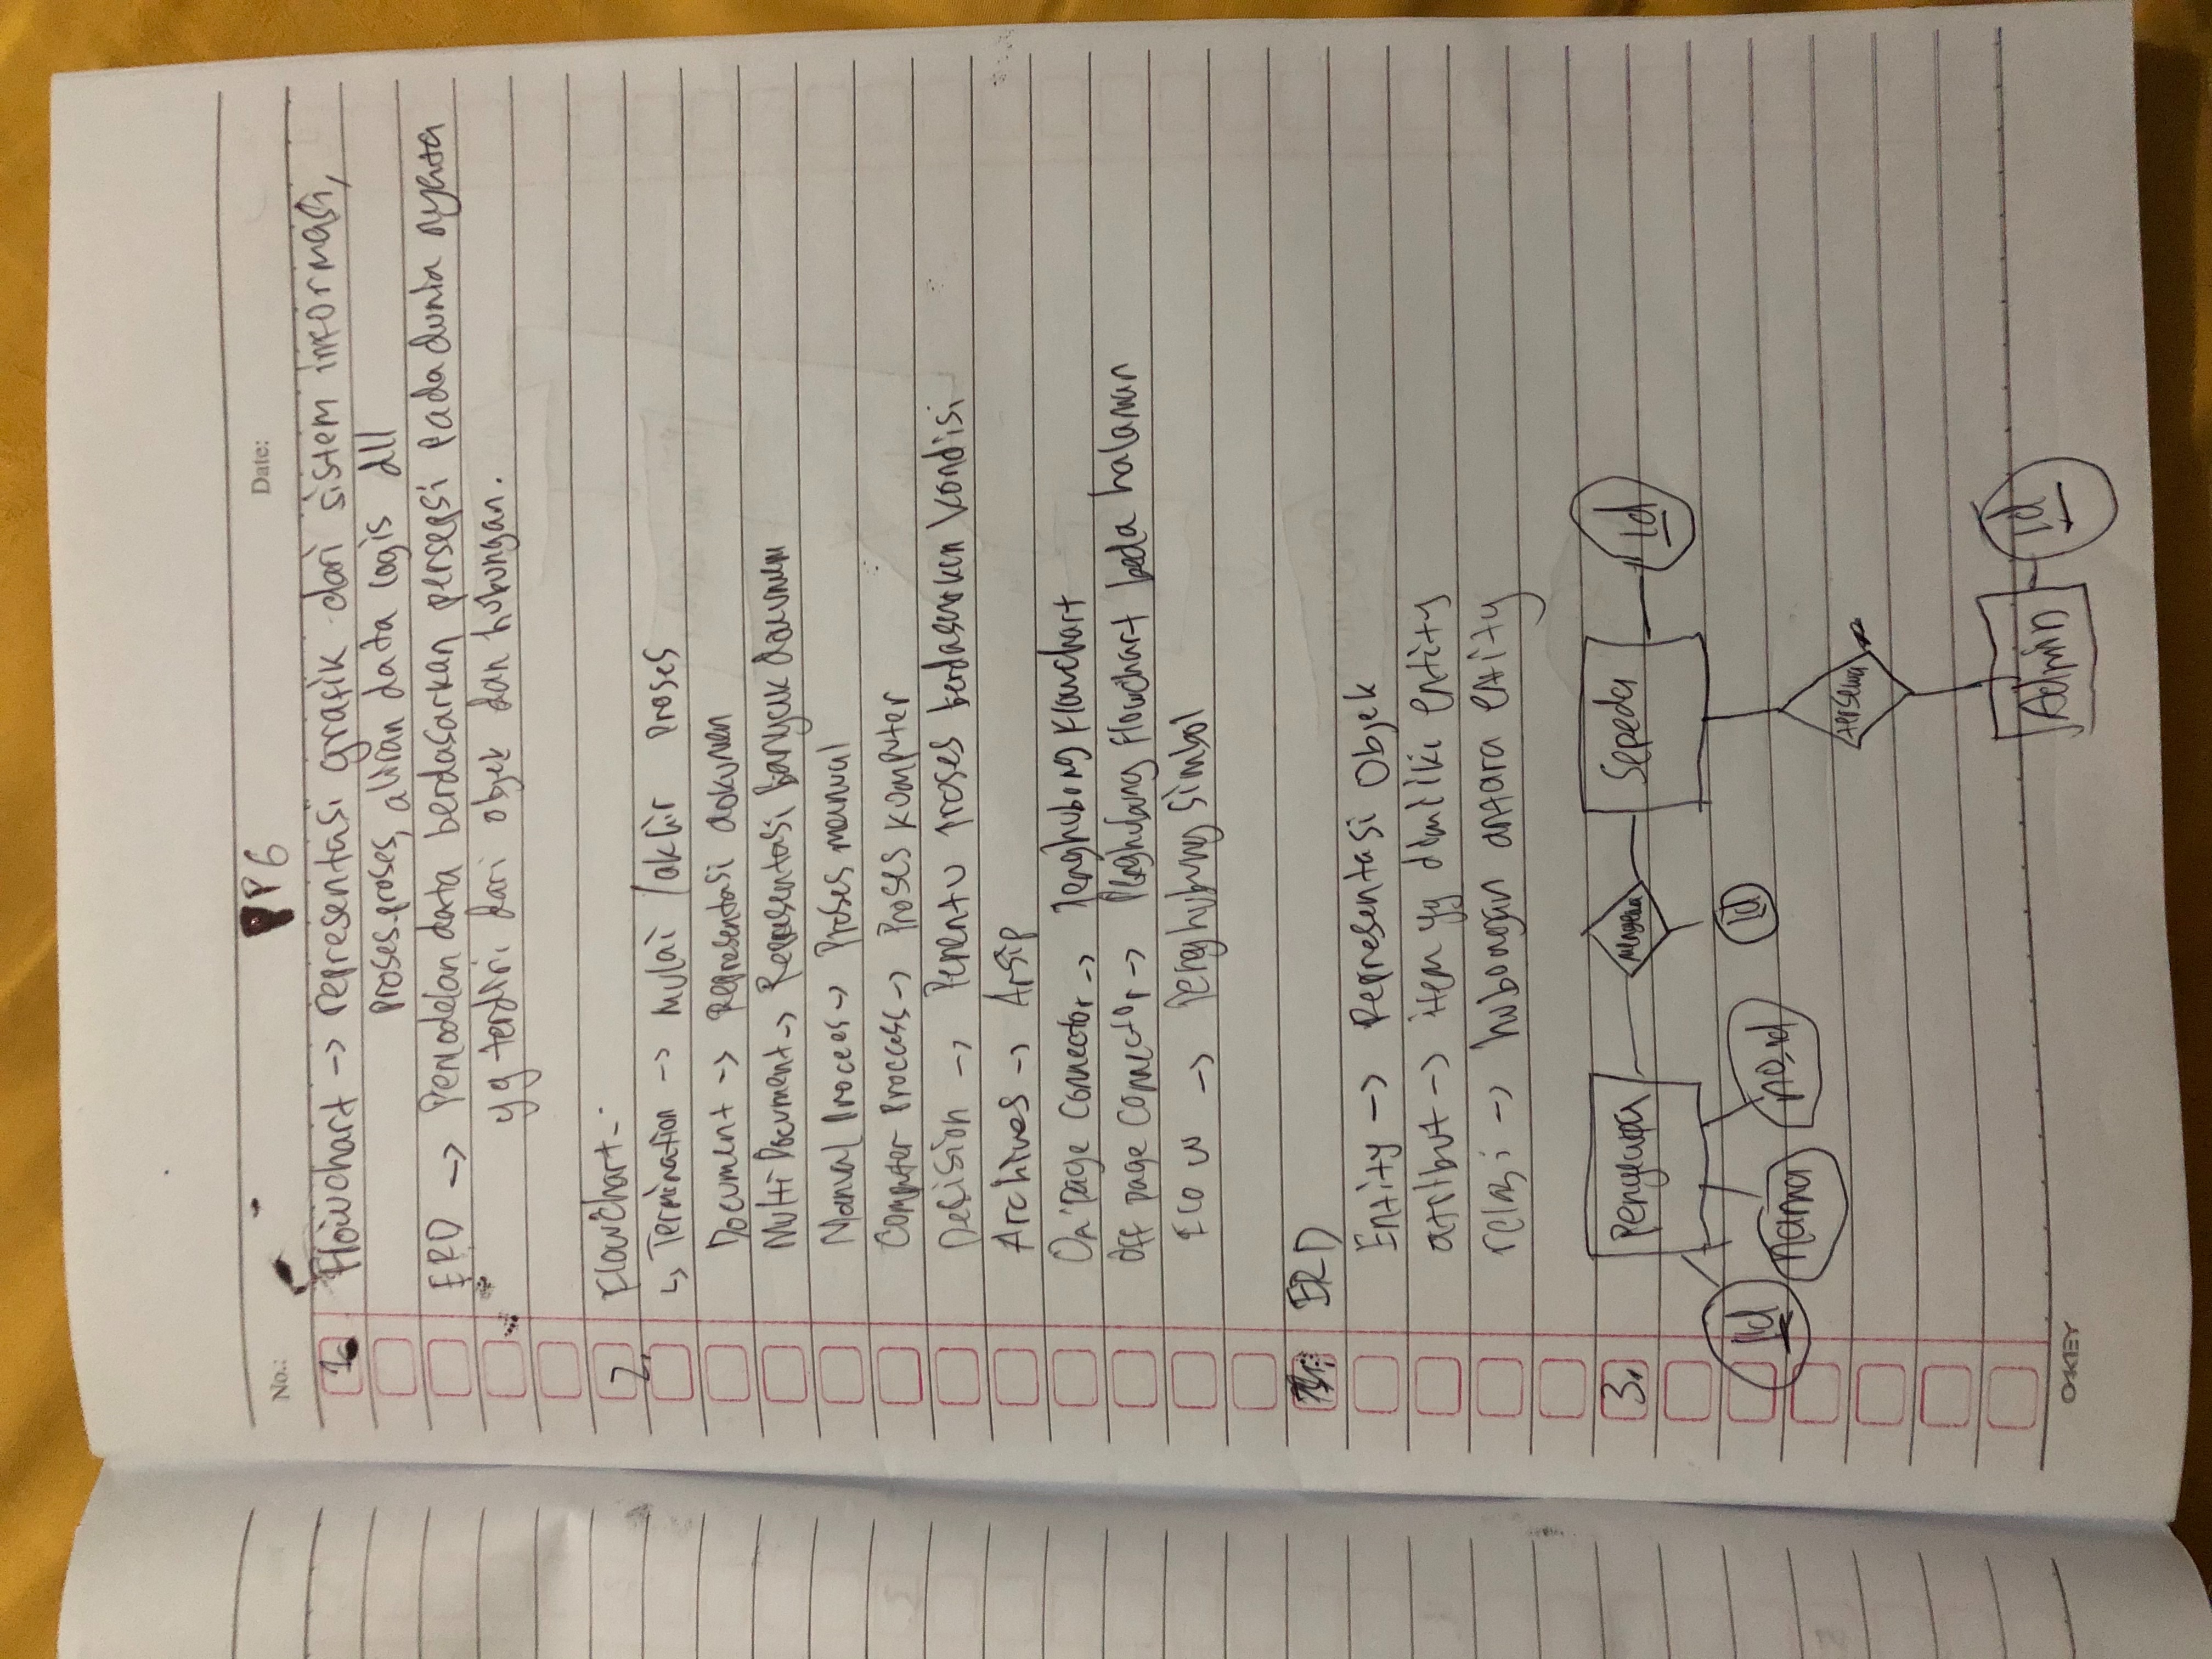 PP6
No.:
Date:
1. Flowchart -> representasi grafik dari sistem informasi,
proses-proses, aliran data logis dll
ERD -> Pemodelan data berdasarkan persepsi pada dunia nyata
yg terdiri dari objek dan hubungan.
2. Flowchart -
↳ Termination -> mulai / akhir proses
Document -> Representasi dokumen
Multi Document -> Representasi Banyak
Manual Procees -> Proses manual
Computer Proccess -> Proses komputer
Decision -> Penentu Proses berdasarkan kondisi
Archives -> Arsip
On page Connector -> Penghubung Flowchart
Off page Connector -> Penghubung Flowchart beda halaman
-> Penghubung Simbol
ERD
Entity -> Representasi Objek
atribut -> item yg dimiliki entity
relasi -> hubungan antara entity
3. Penyewa
Sepeda
id
id
nama
no_id
id
tersewa
Admin
id
OKEY